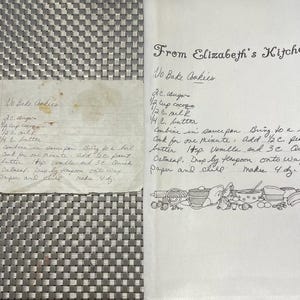 No Bake Cookies
2 C. sugar
1/2 cup cocoa
1/2 C. milk
1/4 C. butter
Combine in saucepan. Bring to a boil
Cook for one minute. Add 1/2 C. peanut
butter 1 tsp vanilla and 3 C.
Oatmeal. Drop by teaspoon onto wax
paper and chill. Makes 4 dz.
From Elizabeth's Kitche
No Bake Cookies
2 C. sugar
1/2 cup cocoa
1/2 C. milk
1/4 C. butter
Combine in saucepan. Bring to a
Cook for one minute. Add 1/2 C. p
butter 1 tsp Vanilla and 3 C.
Oatmeal. Drop by teaspoon onto wax
paper and chill. Makes 4 dz.